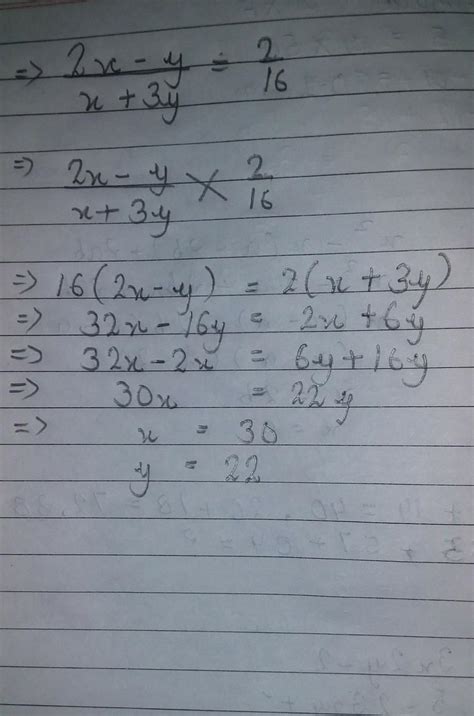 => 2x - y / x + 3y = 2 / 16
=> 2x - y / x + 3y × 2 / 16
=> 16(2x - y) = 2(x + 3y)
=> 32x - 16y = 2x + 6y
=> 32x - 2x = 6y + 16y
=> 30x = 22y
=> x = 30
y = 22